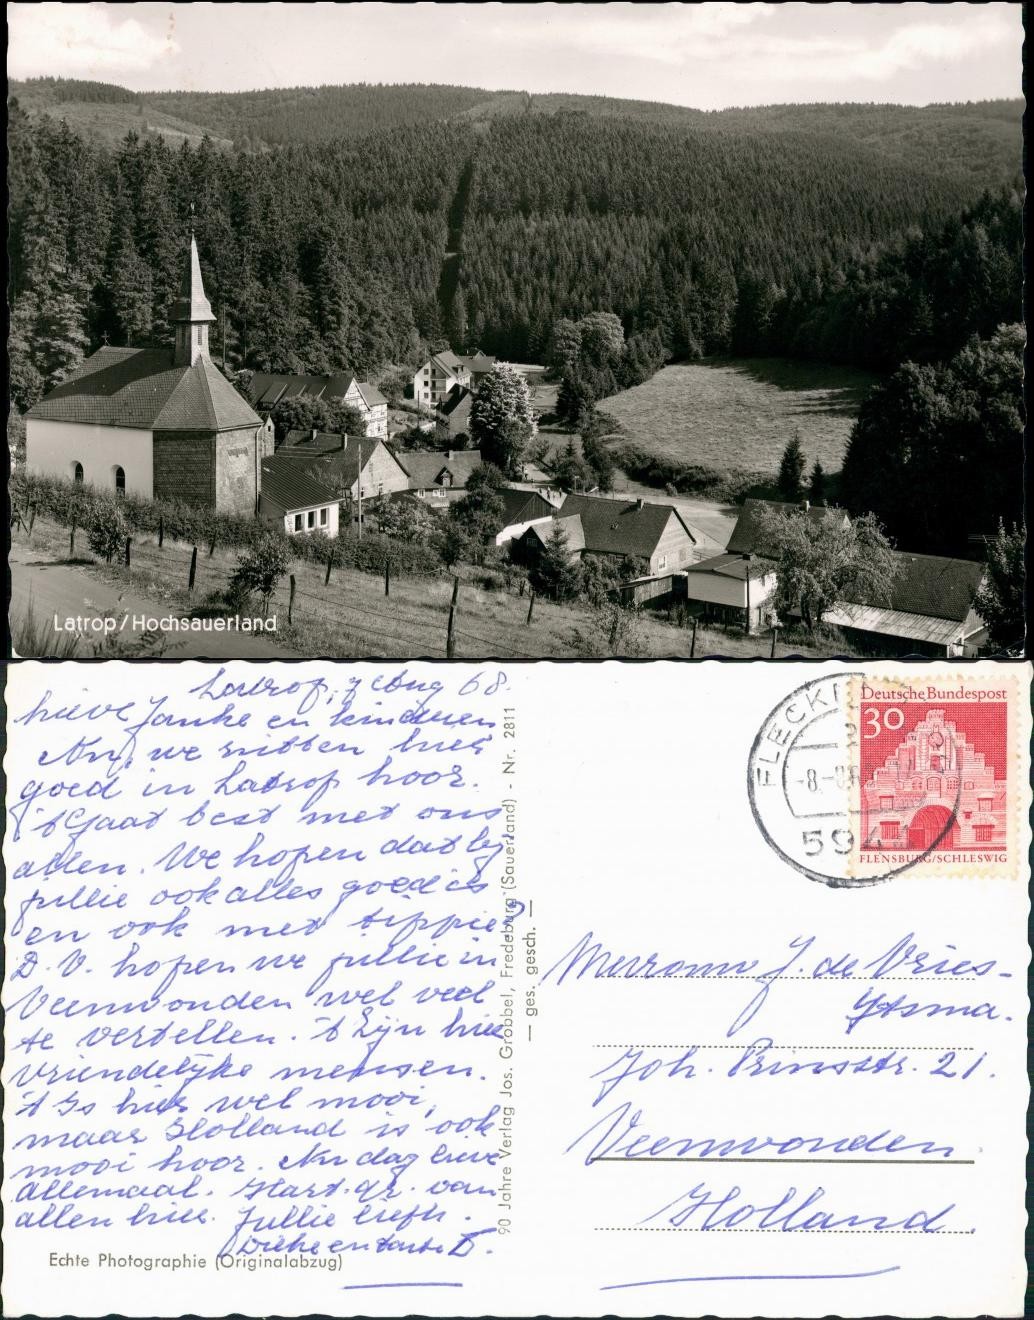 Latrop/Hochsauerland
Latrop, 7 Aug 68.
Lieve Janke en kinderen
Nu, we zitten hier
goed in Latrop hoor.
't Gaat best met ons
allen. We hopen dat bij
jullie ook alles goed is
en ook met
D.V. hopen we jullie in
Veenwouden wel veel
te vertellen. 't Zijn hier
vriendelijke mensen.
't Is hier wel mooi,
maar Holland is ook
mooi hoor. Nu dag lieve
allemaal. Hart. gr. van
allen hier. Jullie liefh.
en tante T.
Echte Photographie (Originalabzug)
90 Jahre Verlag Jos. Grobbel, Fredeburg (Sauerland) - Nr. 2811
— ges. gesch. —
Deutsche Bundespost
30
FLENSBURG/SCHLESWIG
-8.-8.6
Mevrouw J. de Vries-
Ytsma.
Joh. Prinsstr. 21.
Veenwouden.
Holland.